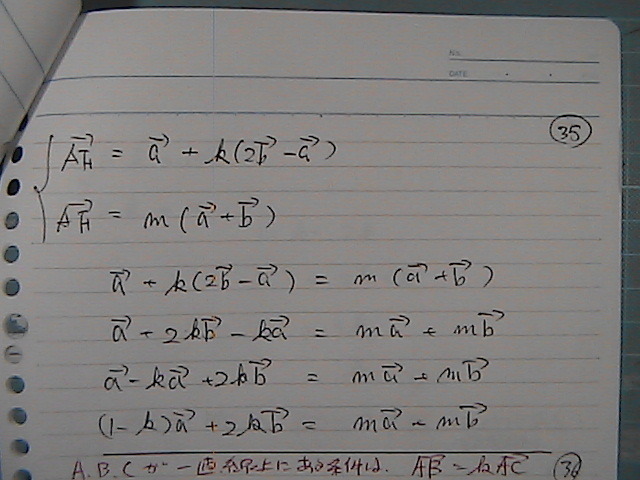 No.
DATE
㉟
$\overrightarrow{AH} = \vec{a} + k(2\vec{b} - \vec{a})$
$\overrightarrow{AH} = m(\vec{a} + \vec{b})$
$\vec{a} + k(2\vec{b} - \vec{a}) = m(\vec{a} + \vec{b})$
$\vec{a} + 2k\vec{b} - k\vec{a} = m\vec{a} + m\vec{b}$
$\vec{a} - k\vec{a} + 2k\vec{b} = m\vec{a} + m\vec{b}$
$(1-k)\vec{a} + 2k\vec{b} = m\vec{a} + m\vec{b}$
A.B.Cが一直線上にある条件は. $\overrightarrow{AB} = k\overrightarrow{AC}$ ㊱